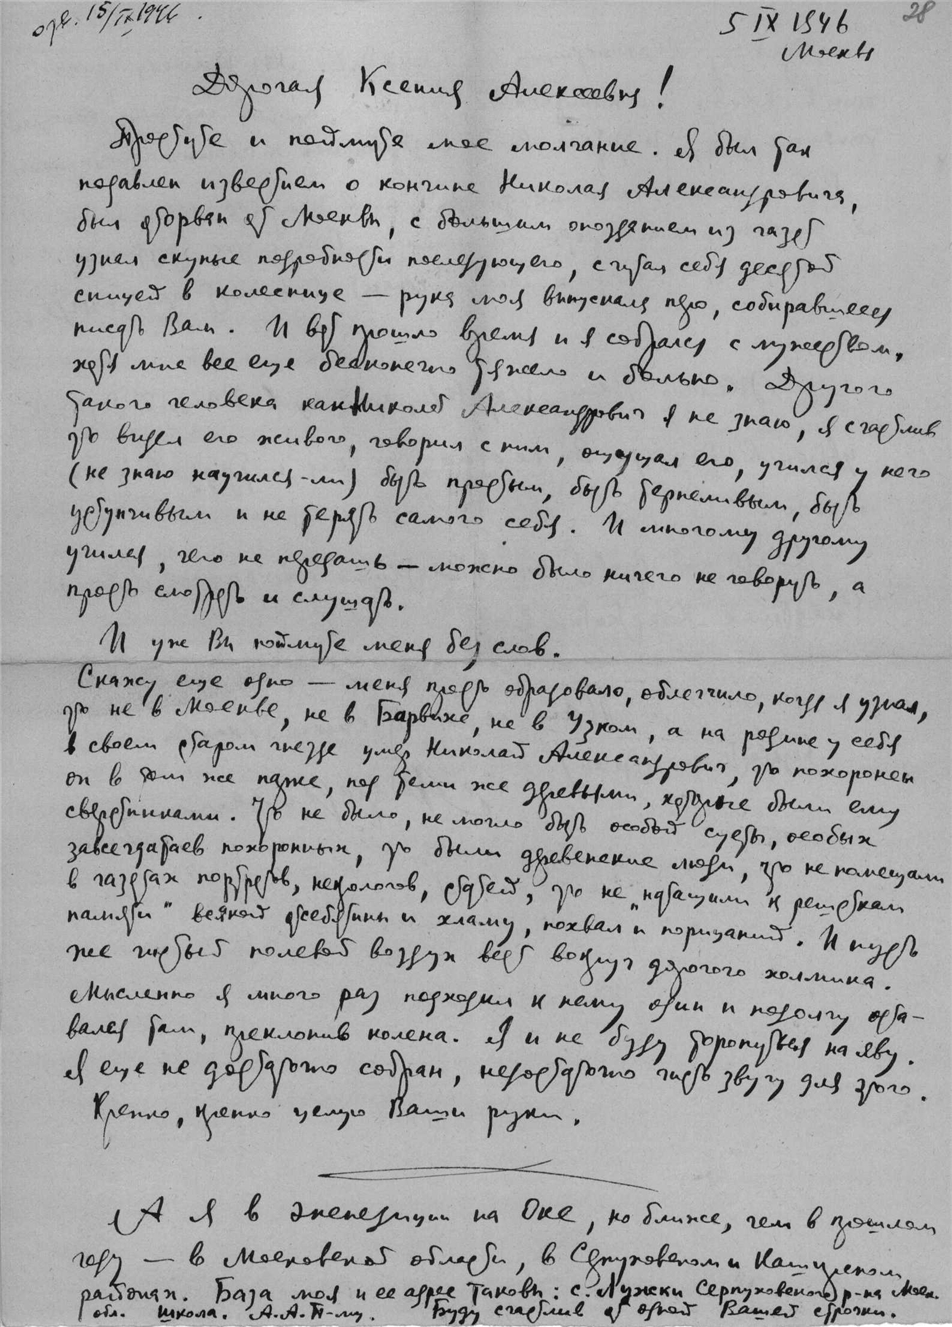 отв. 15/IX 1946.
28
5 IX 1946
Москва
Дорогая Ксения Алексеевна!
Простите и поймите мое молчание. Я был так
подавлен известием о кончине Николая Александровича,
был оторван от Москвы, с большим опозданием из газет
узнал скупые подробности последующего, считал себя десятой
спицей в колеснице — рука моя выпускала перо, собиравшееся
писать Вам. И вот прошло время и я собрался с мужеством,
хотя мне все еще бесконечно тяжело и больно. Другого
такого человека как Николай Александрович я не знаю, я счастлив
что видел его живого, говорил с ним, ощущал его, учился у него
(не знаю научился-ли) быть простым, быть терпеливым, быть
уступчивым и не терять самого себя. И многому другому
учился, чего не передашь — можно было ничего не говорить, а
просто смотреть и слушать.
И уже Вы поймите меня без слов.
Скажу еще одно — меня просто обрадовало, облегчило, когда я узнал,
что не в Москве, не в Барвихе, не в Узком, а на родине у себя
в своем старом гнезде умер Николай Александрович, что похоронен
он в том же парке, под теми же деревьями, которые были ему
сверстниками. Что не было, не могло быть особой суеты, особых
завсегдатаев похоронных, что были деревенские люди, что не помещали
в газетах портретов, некрологов, статей, что не „натащили к решеткам
памяти" всякой отсебятины и хламу, похвал и порицаний. И пусть
же чистый полевой воздух веет вокруг дорогого холмика.
Мысленно я много раз подходил к нему один и подолгу оста-
вался там, преклонив колена. Я и не буду торопиться наяву.
Я еще не достаточно собран, недостаточно чисто звучу для этого.
Крепко, крепко целую Ваши руки.
А я в экспедиции на Оке, но ближе, чем в прошлом
году — в Московской области, в Серпуховском и Каширском
районах. База моя и ее адрес таковы: с. Лужки Серпуховского р-на Моск.
обл. школа. А.А.П-му. Буду счастлив от одной Вашей строчки.